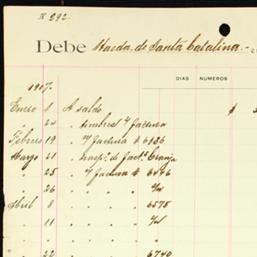 N 292.
Debe Hacda. de Santa Catalina.-
DIAS NUMEROS
1907.
Enero 1 A saldo $
" 24 " timbres y factura
Febrero 19 " factura # 6136
Marzo 21 " de fact.
" 25 " factura # 6446
" " " 26
Abril 8 " " " 6575
" 11 " " "
" 22 " " " 6740